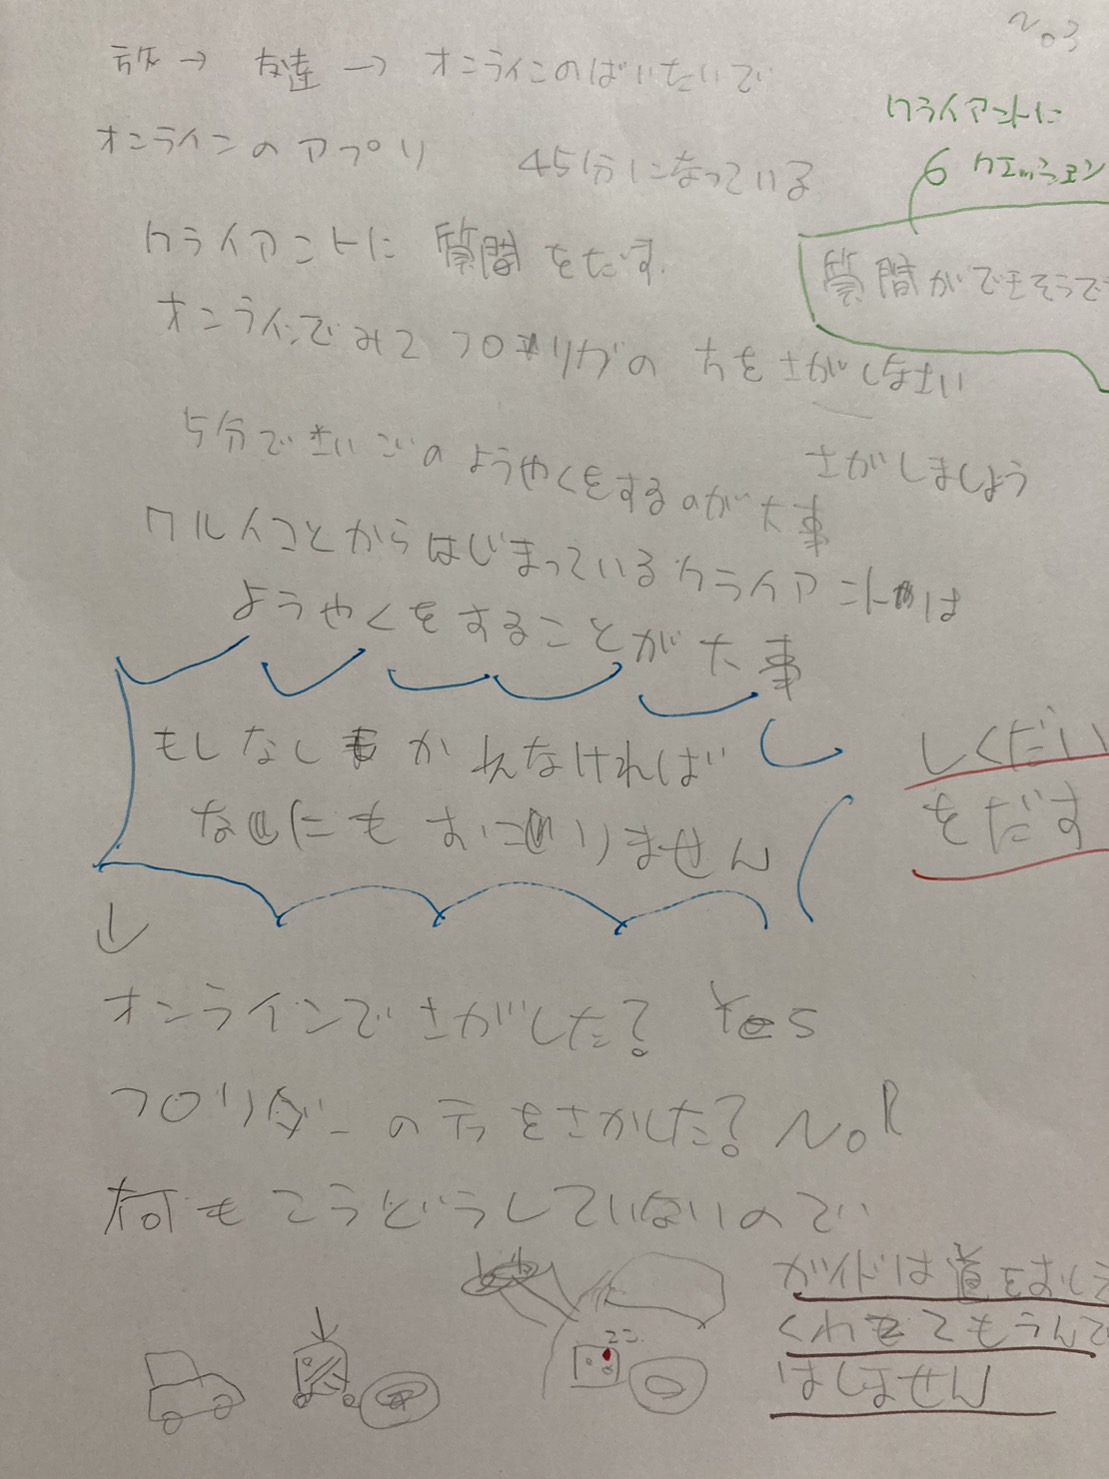 No3
→ 友達 → オンラインのばいたいで
オンラインのアプリ 45分になっている
クライアントに
6 クエッション
クライアントに 質問をだす.
質問ができそうで
オンラインでみて フロリダの 方をさがしなさい
5分でさいごのようやくをするのが大事
さがしましょう
ワルイコとからはじまっているクライアントは
ようやくをすることが大事
もしなしかれなければ
なにもおこりません
しくだい
をだす
↓
オンラインでさがした? Yes
フロリダーの方をさかした? No
何もこうどうしていないので
ガイドは道をおしえ
くれてもうんて
はしません
ココ